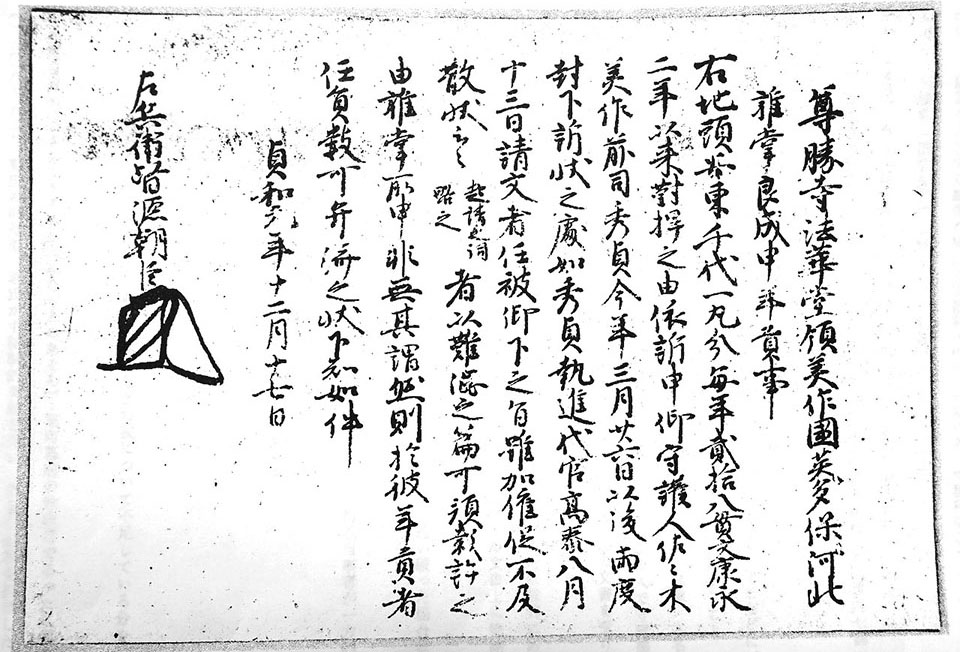 尊勝寺法華堂領美作国英多保河北
雑掌良成申年貢事
右地頭後東千代一丸分毎年貳拾八貫文康永
二年以来對捍之由依訴申仰守護人佐々木
美作前司秀貞今年三月廿六日以後兩度
封下訴状之處如秀貞執進代官高泰八月
十三日請文者任被仰下之旨雖加催促不及
散状云々 起請之詞略之 者以難澁之篇可預裁許之
由雑掌所申非無其謂然則於彼年貢者
任員數可弁濟之状下知如件
貞和元年十二月十七日
左兵衛督源朝臣